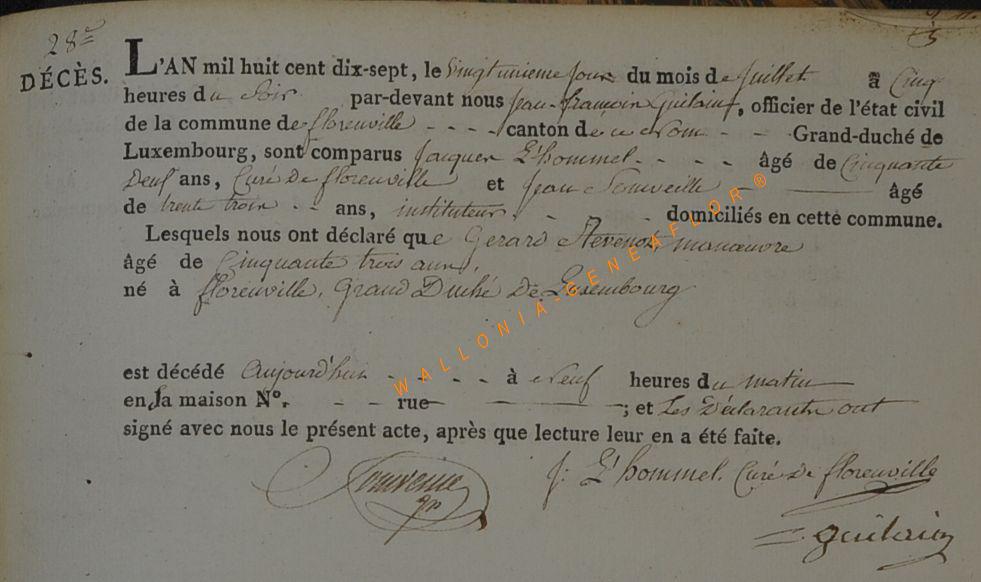 28e
DÉCÈS.
L'AN mil huit cent dix-sept, le vingtunieme jour du mois de juillet à Cinq
heures du Soir par-devant nous jean-françois Guilain, officier de l'état civil
de la commune de florenville - - - - canton de ce nom - - Grand-duché de
Luxembourg, sont comparus jacques L'hommel - - - - âgé de Cinquante
Deuf ans, Curé De florenville et jean - âgé
de trente trois - - ans, instituteur - - - domiciliés en cette commune.
Lesquels nous ont déclaré que Gerard Stevenot manœuvre
âgé de Cinquante trois ans,
né à florenville, Grand Duché De Luxembourg
est décédé aujourd'hui - - - - - à neuf heures du matin
en sa maison N°. - - rue ; et Les Déclarants ont
signé avec nous le présent acte, après que lecture leur en a été faite.
J: L'hommel. Curé De florenville
guilain
WALLONIA-GENEAFLOR®